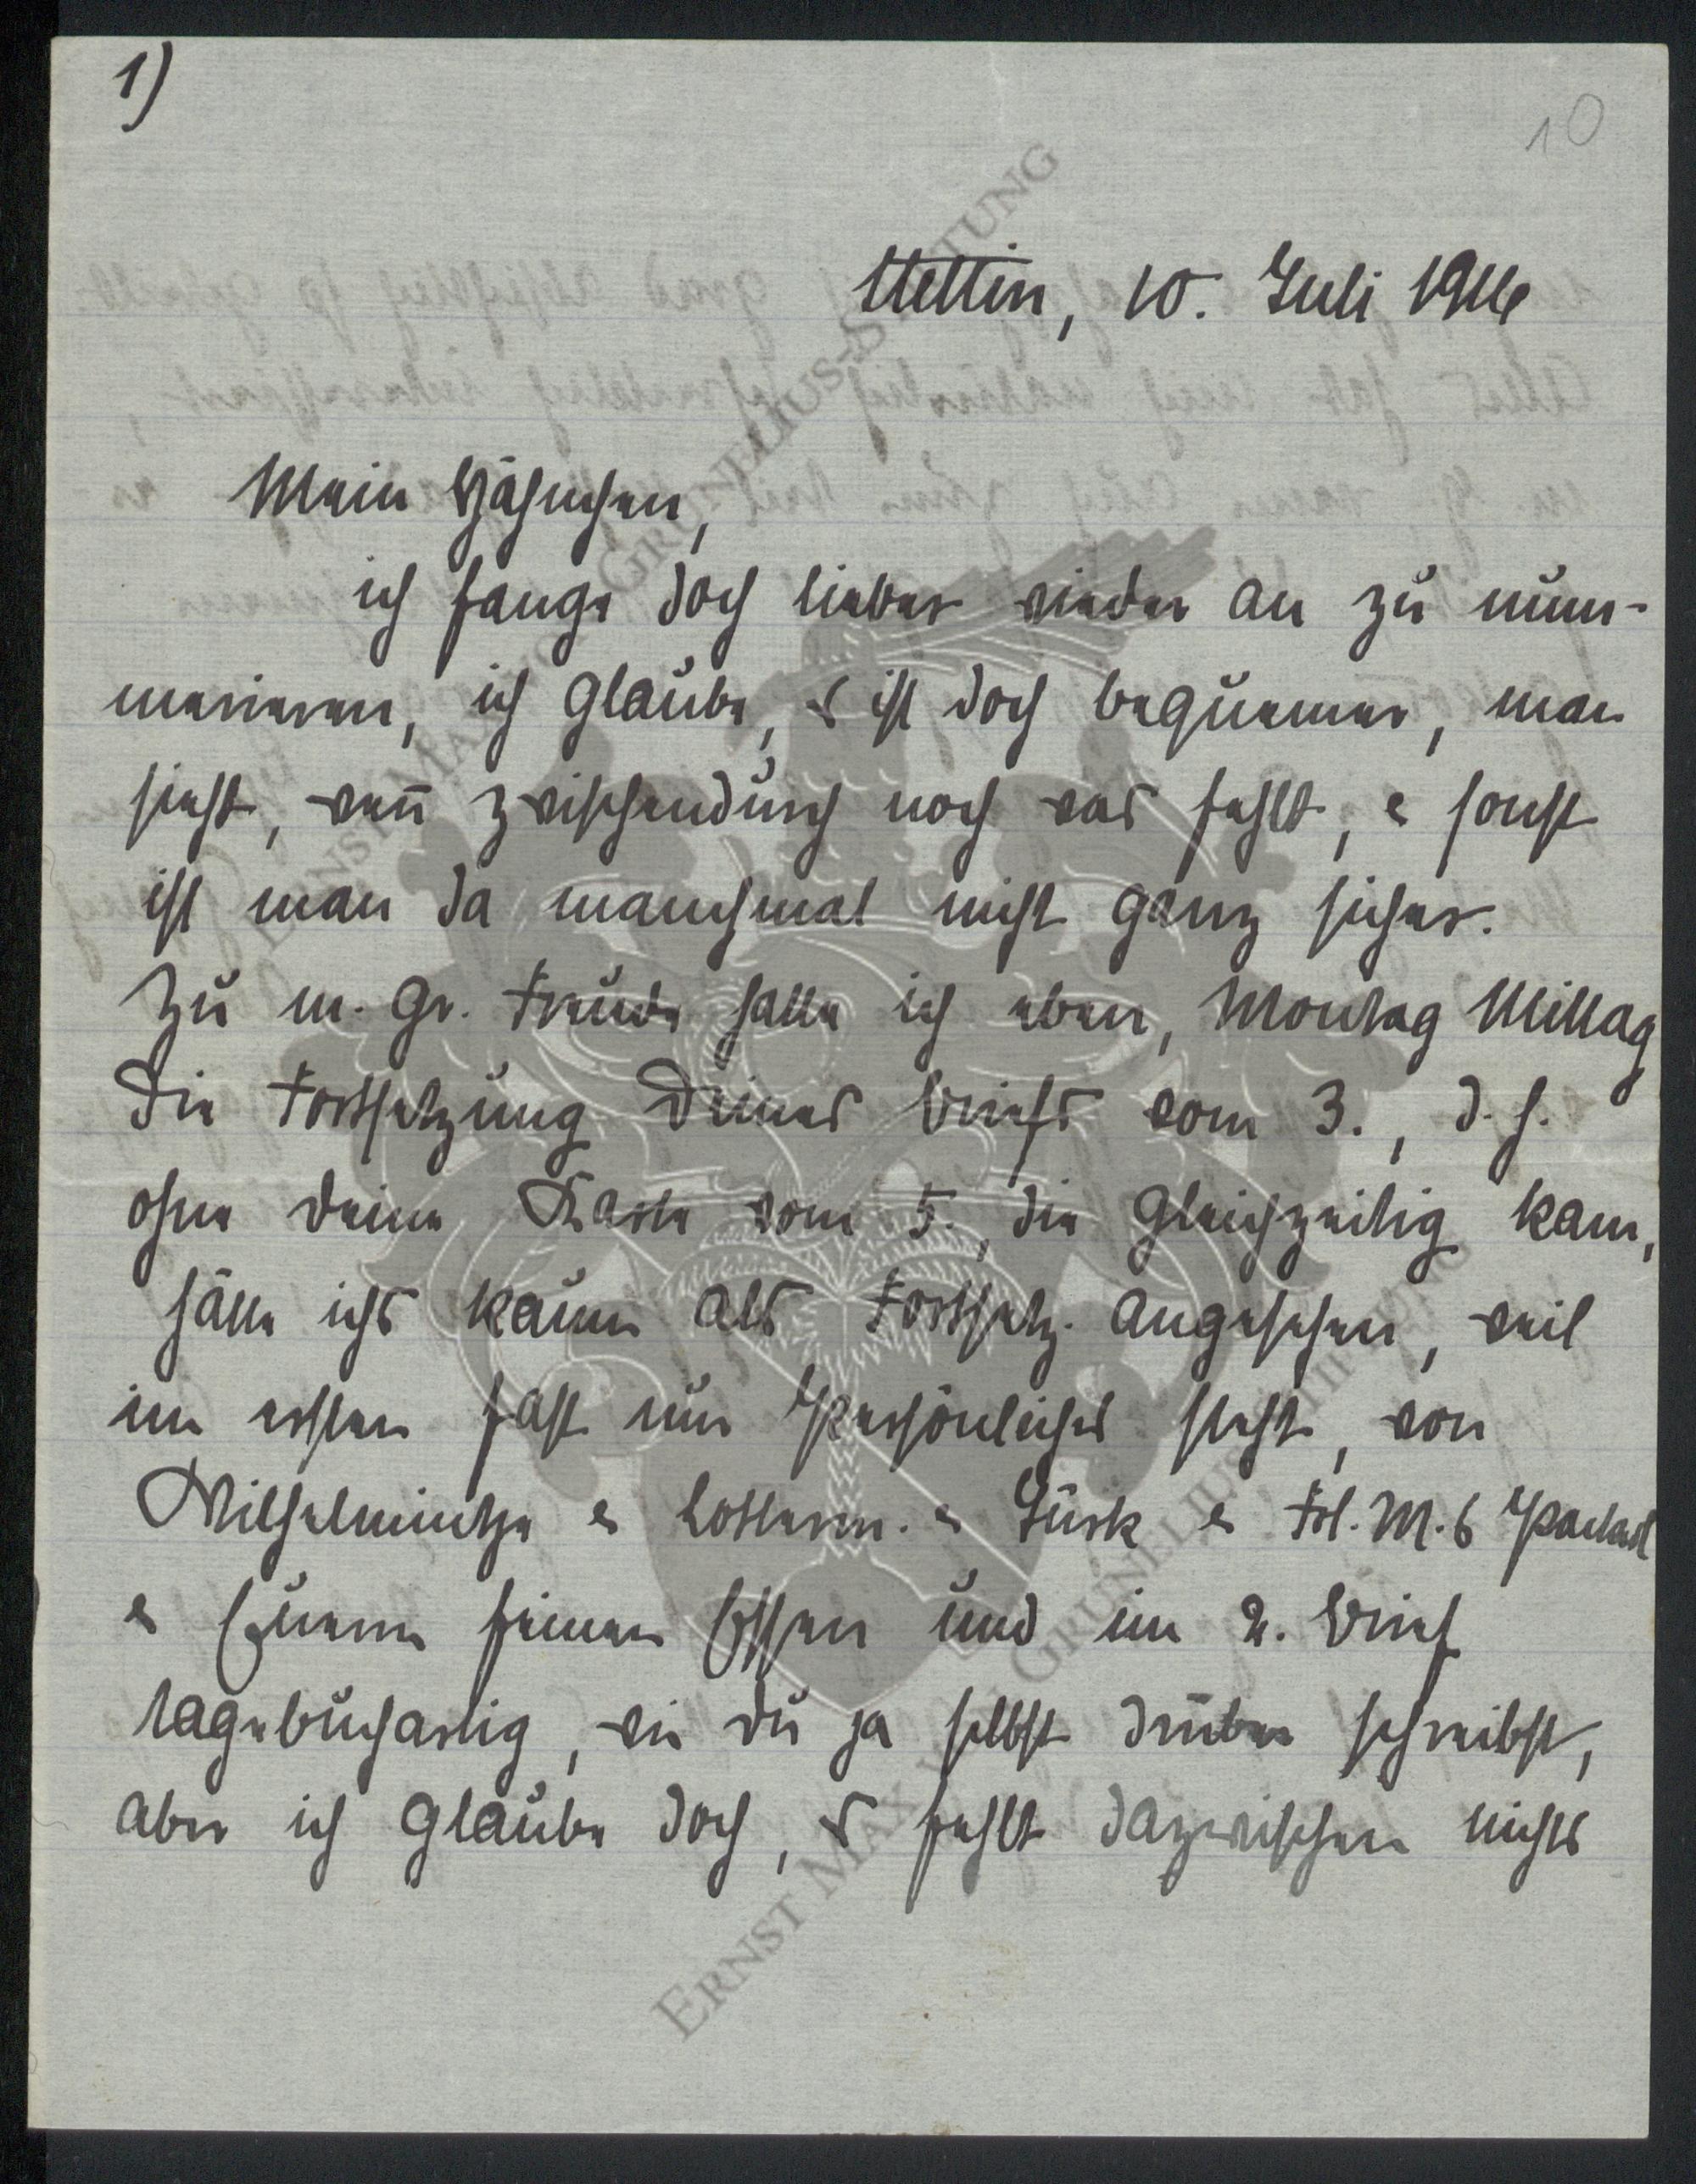 1)
10
Stettin, 10. Juli 1916
Mein Hähnchen,
ich fange doch lieber wieder an zu num-
merieren, ich glaube, es ist doch bequemer, man
sieht, wenn zwischendurch noch was fehlt, u sonst
ist man da manchmal nicht ganz sicher.
Zu m. gr. Freude hatte ich eben, Montag Mittag
die Fortsetzung Deines Briefs vom 3., d. h.
ohne Deine Karte vom 5., die gleichzeitig kam,
hätte ichs kaum als Fortsetz. angesehen, weil
im ersten fast nur Persönliches steht, von
Wilhelmintje u u Türk u Frl. M.s
u Eurem feinen Essen und im 2. Brief
tagebuchartig, wie Du ja selbst drüber schreibst,
aber ich glaube doch, es fehlt dazwischen nichts
ERNST MAX VON GRUNELIUS-STIFTUNG
ERNST MAX VON GRUNELIUS-STIFTUNG